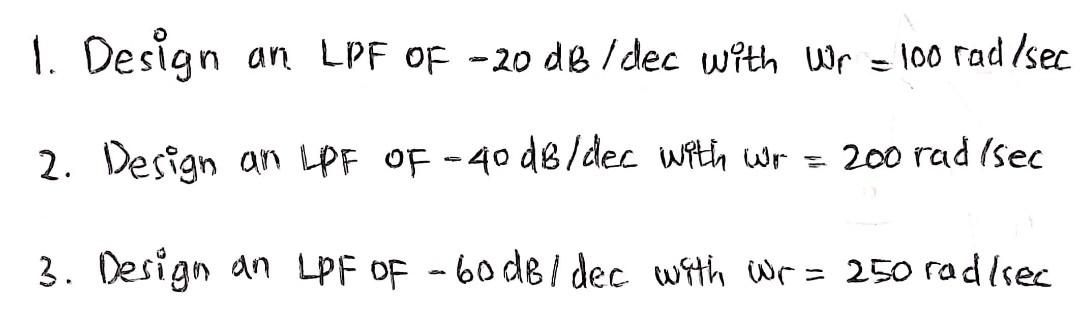 1. Design an LPF OF -20 dB/dec with Wr = 100 rad/sec
2. Design an LPF OF -40 dB/dec with wr = 200 rad/sec
3. Design an LPF OF -60 dB/dec with wr = 250 rad/sec